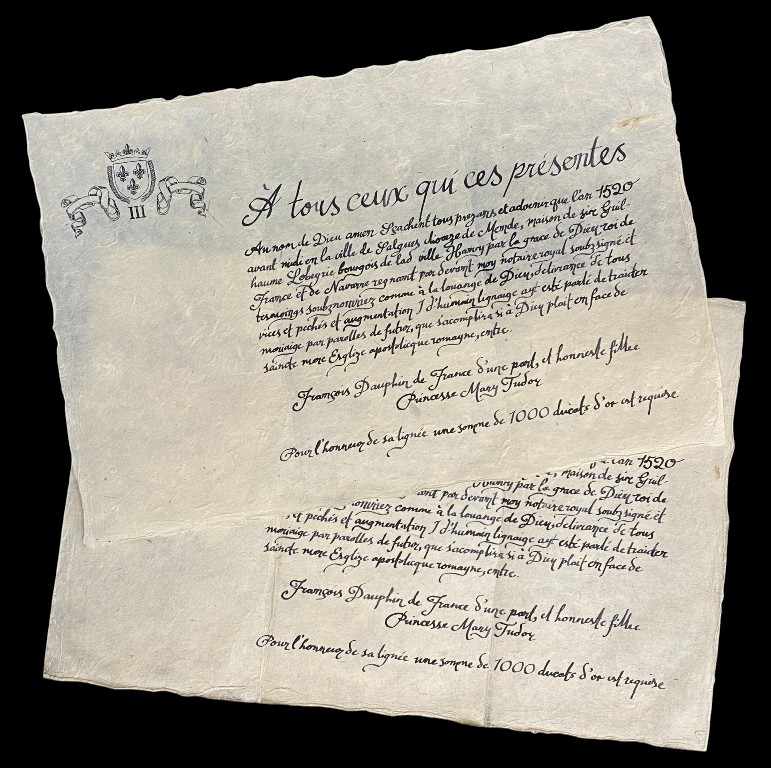 III
À tous ceux qui ces présentes
Au nom de Dieu amen Szachent tous prezans et advenir que l'an 1520
avant midi en la ville de Salgues dioceze de Mende, maison de sire Guil-
haume Lobeyrie bourgois de lad ville Hanry par la grace de Dieu roi de
France et de Navarre regnant par devant moy notaire royal soubzsigné et
tesmoings soubznonvriez comme à la louange de Dieu, delivrance de tous
vices et pechés et augmentation J d'humain lignaige ayt esté parlé de traicter
mariaige par parolles de futur, que s'acomplira si à Dieu plait en face de
saincte mere Esglize apostolicque romayne, entre.
François Dauphin de France d'une part, et honneste filhe
Princesse Mary Tudor
Pour l'honneur de sa lignée une somme de 1000 ducats d'or est requise
l'an 1520
maison de sire Guil-
Hanry par la grace de Dieu roi de
par devant moy notaire royal soubzsigné et
comme à la louange de Dieu, delivrance de tous
et pechés et augmentation J d'humain lignaige ayt esté parlé de traicter
mariaige par parolles de futur, que s'acomplira si à Dieu plait en face de
saincte mere Esglize apostolicque romayne, entre.
François Dauphin de France d'une part, et honneste filhe
Princesse Mary Tudor
Pour l'honneur de sa lignée une somme de 1000 ducats d'or est requise